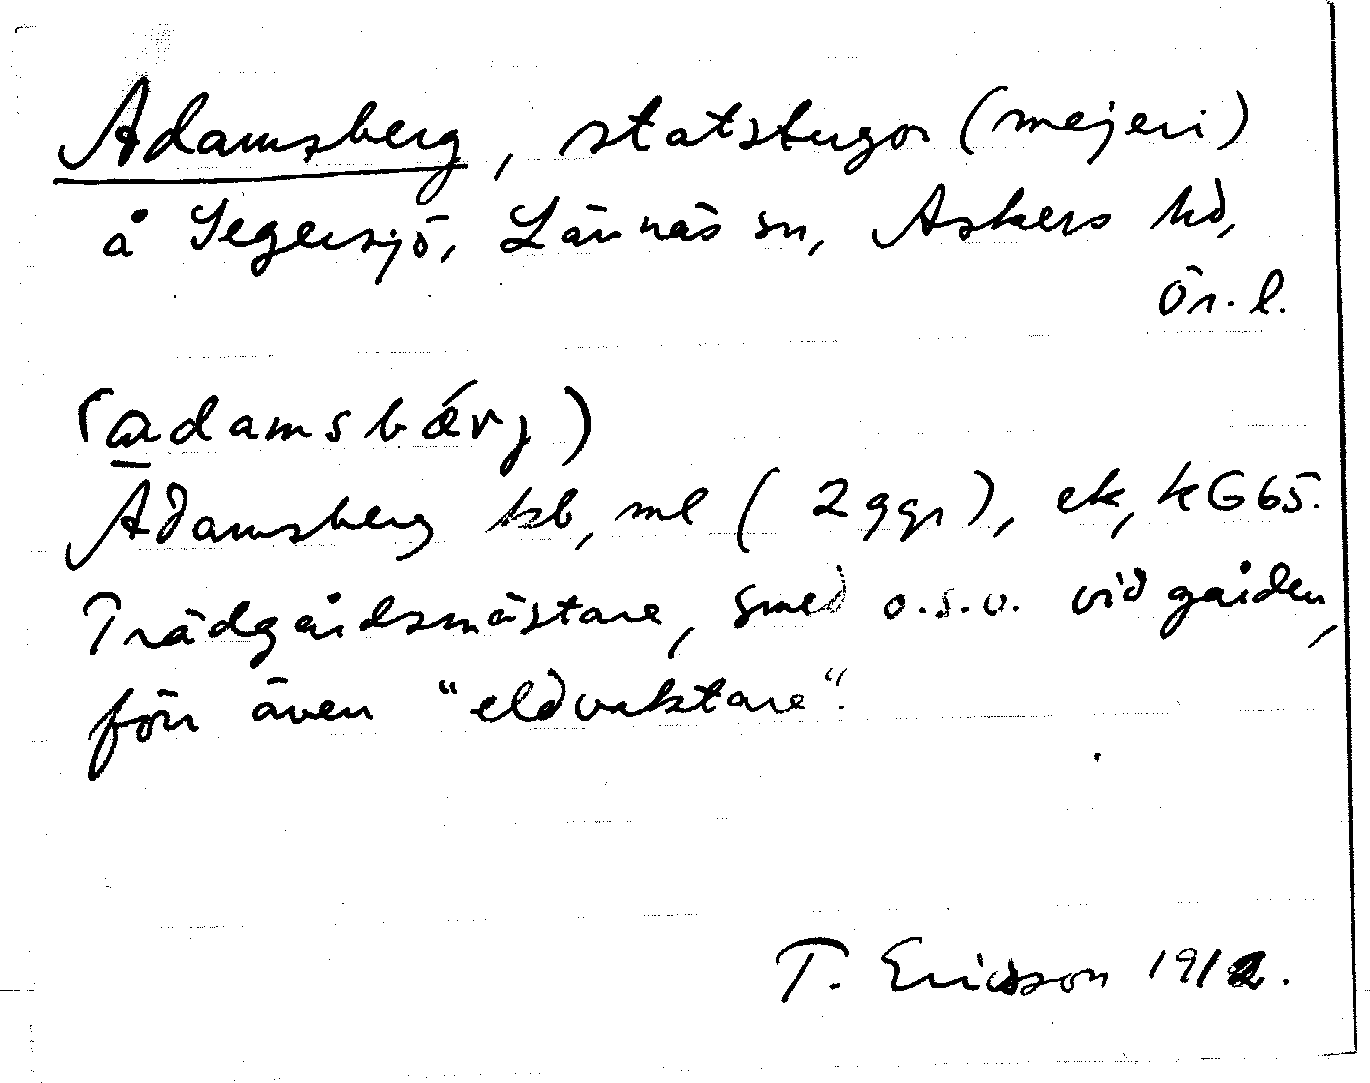 Adamsberg, statstugor (mejeri)
å Segersjö, Lännäs sn, Askers hd,
Ör. l.
(adamsbǽrj)
Adamsberg kb, ml (2 ggr), ek, kG65.
Trädgårdsmästare, smed o.s.v. vid gården,
förr även "eldvaktare".
T. Ericsson 1912.